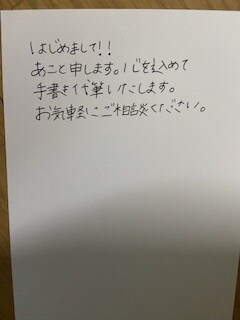 はじめまして!!
あこと申します。心を込めて
手書き代筆いたします。
お気軽にご相談ください。